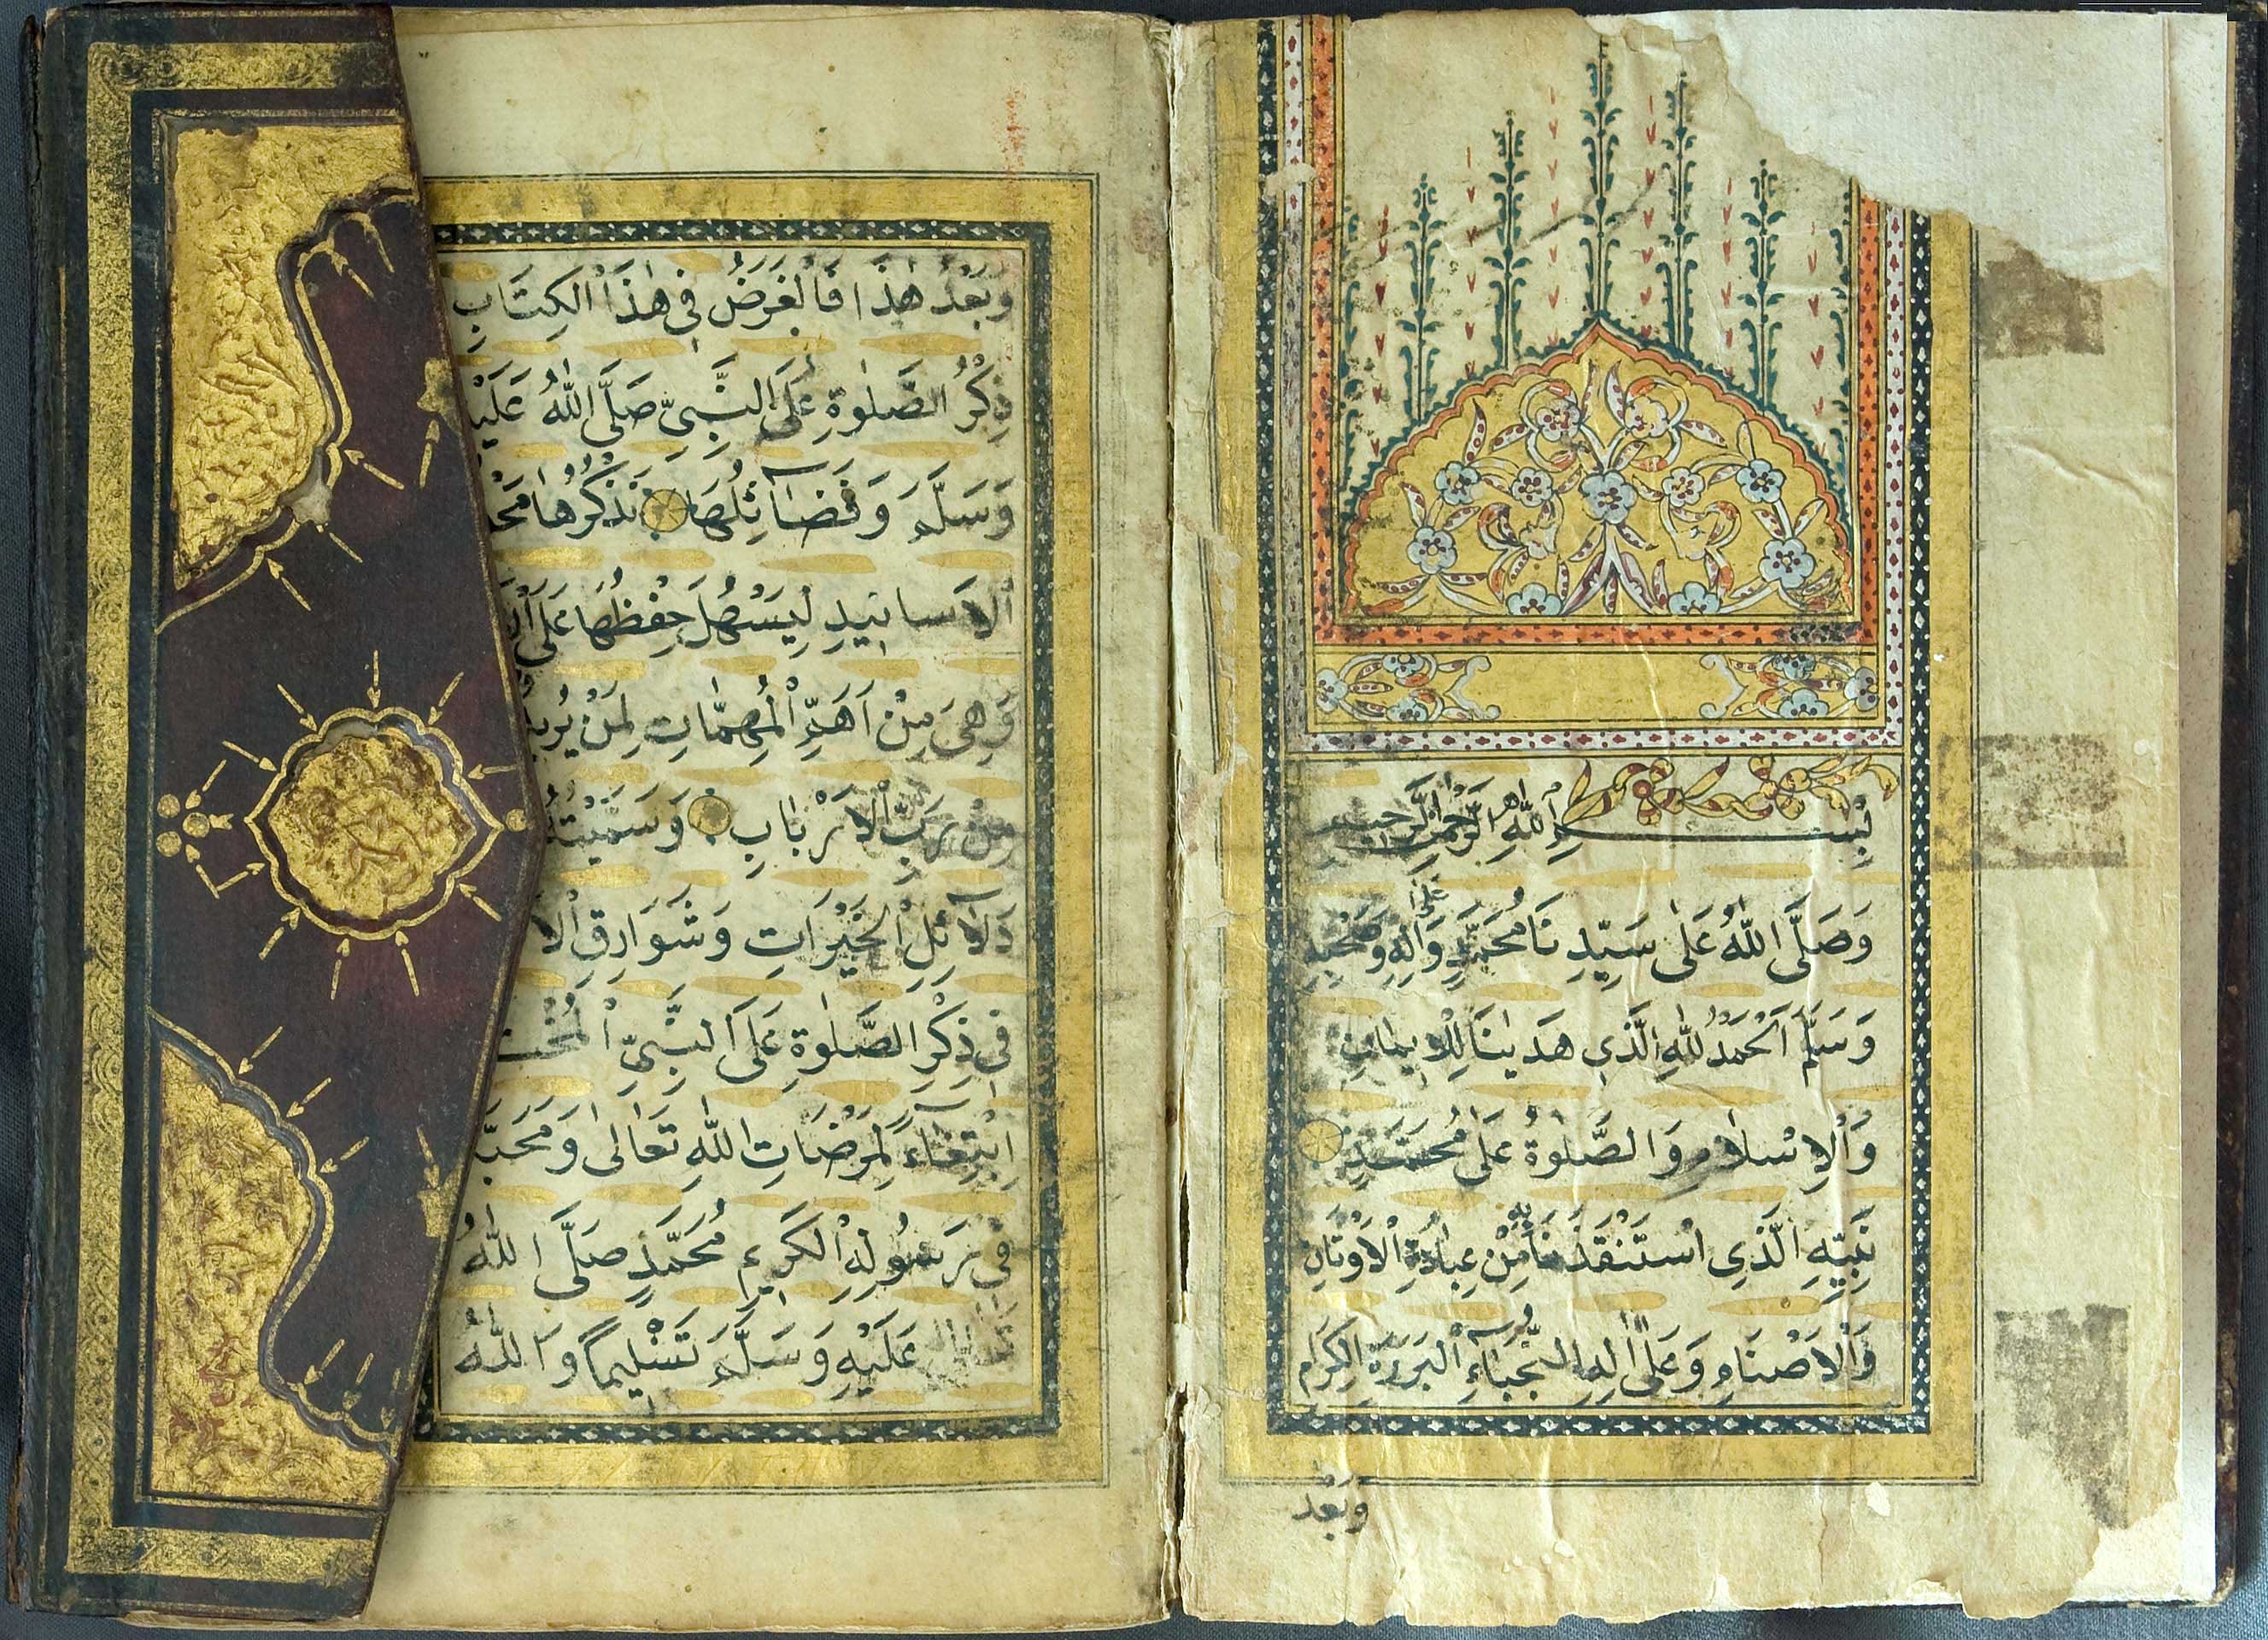 بِسْمِ اللّٰهِ الرَّحْمٰنِ الرَّحِيمِ
وَصَلَّى اللّٰهُ عَلٰى سَيِّدِنَا مُحَمَّدٍ وَعَلٰى اٰلِهِ وَصَحْبِهِ
وَسَلَّمَ اَلْحَمْدُ لِلّٰهِ الَّذِي هَدٰينَا لِلْاِيمَانِ
وَالْاِسْلَامِ وَالصَّلٰوةُ عَلٰى مُحَمَّدٍ
نَبِيِّهِ الَّذِي اسْتَنْقَذَنَا بِهِ مِنْ عِبَادَةِ الْاَوْثَانِ
وَالْاَصْنَامِ وَعَلٰى اٰلِهِ النُّجَبَاءِ الْبَرَرَةِ الْكِرَامِ
وَبَعْدُ
وَبَعْدُ هٰذَا فَالْغَرَضُ فِي هٰذَا الْكِتَابِ
ذِكْرُ الصَّلٰوةِ عَلَى النَّبِيِّ صَلَّى اللّٰهُ عَلَيْ
وَسَلَّمَ وَفَضَائِلُهَا نَذْكُرُهَا مَحْذ
الْاَسَانِيدِ لِيَسْهُلَ حِفْظُهَا عَلَى الْ
وَهِيَ مِنْ اَهَمِّ الْمُهِمَّاتِ لِمَنْ يُرِيدُ
مِنْ رَبِّ الْاَرْبَابِ وَسَمَّيْتُهُ
دَلَائِلَ الْخَيْرَاتِ وَشَوَارِقِ الْاَ
فِي ذِكْرِ الصَّلٰوةِ عَلَى النَّبِيِّ الْمُخْتَ
اِبْتِغَاءً لِمَرْضَاتِ اللّٰهِ تَعَالٰى وَمَحَبَّ
فِي رَسُولِهِ الْكَرِيمِ مُحَمَّدٍ صَلَّى اللّٰهُ
عَلَيْهِ وَسَلَّمَ تَسْلِيمًا وَاللّٰهُ